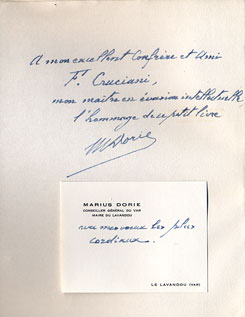 A mon excellent Confrère et Ami
Ft Cruciani,
mon maître en évasion intellectuelle
l'hommage de ce petit livre
MDorie
MARIUS DORIE
CONSEILLER GÉNÉRAL DU VAR
MAIRE DU LAVANDOU
mes voeux les plus
cordiaux.
LE LAVANDOU (VAR)